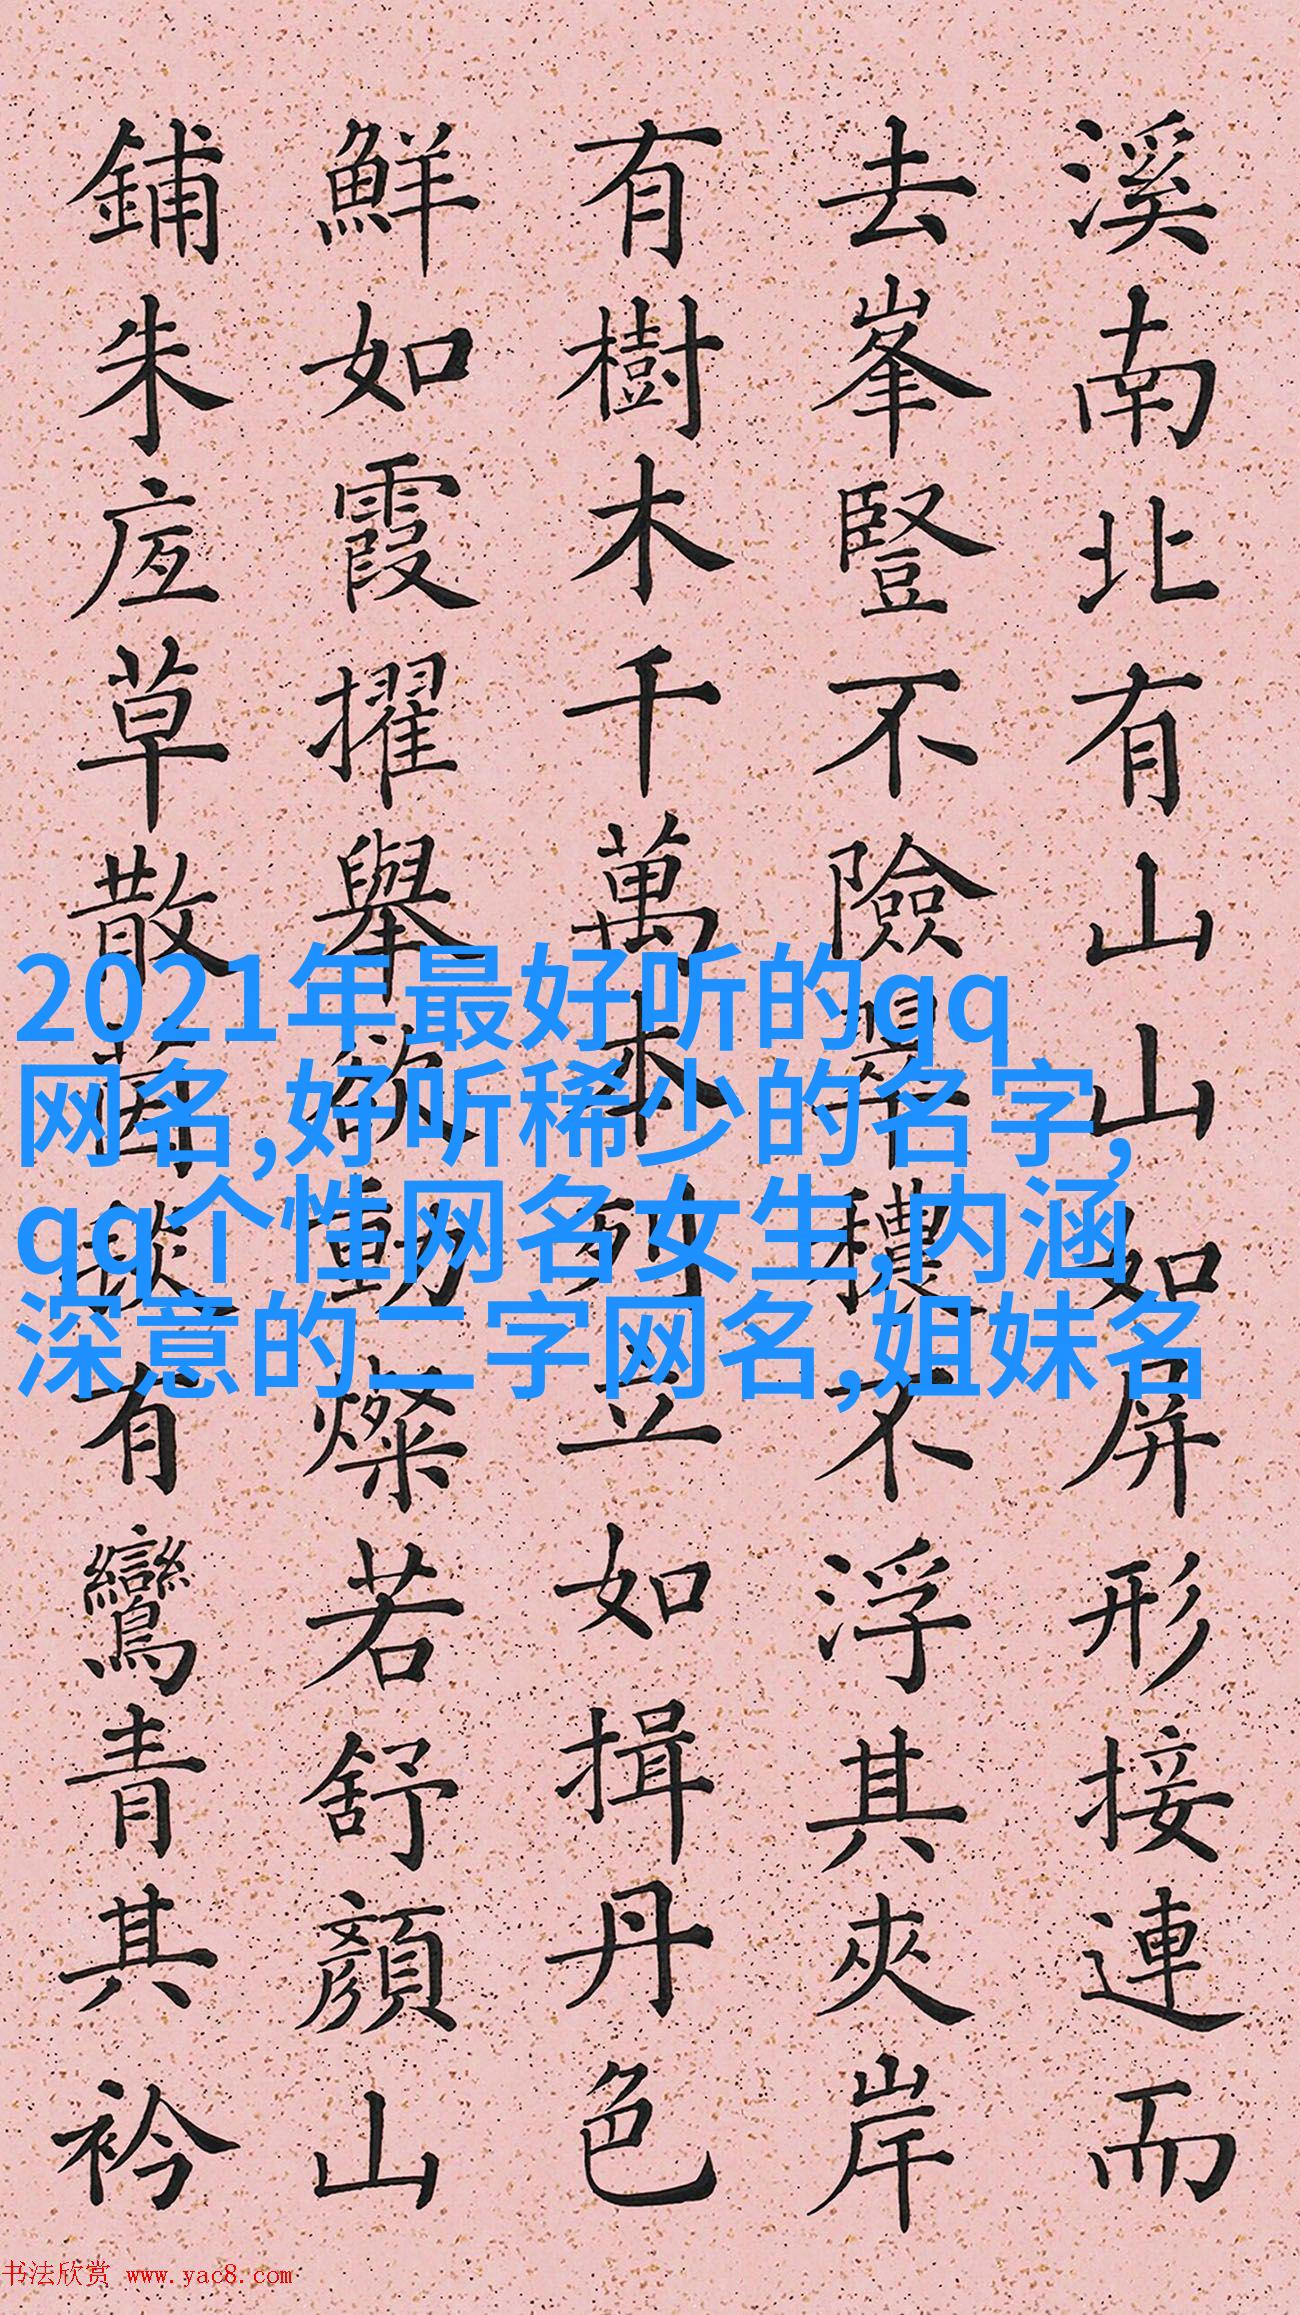 溪南北有山山如屏形接連而
去峯豎不險翠穠不浮其夾岸
有樹木千萬本列立如揖丹色
鮮如霞擢舉欲動燦若舒顏山
鋪朱草散茵毯有鸞青其衿
2021年最好听的qq
网名,好听稀少的名字,
qq个性网名女生,内涵
深意的二字网名,姐妹名
书法欣赏 www.yac8.com